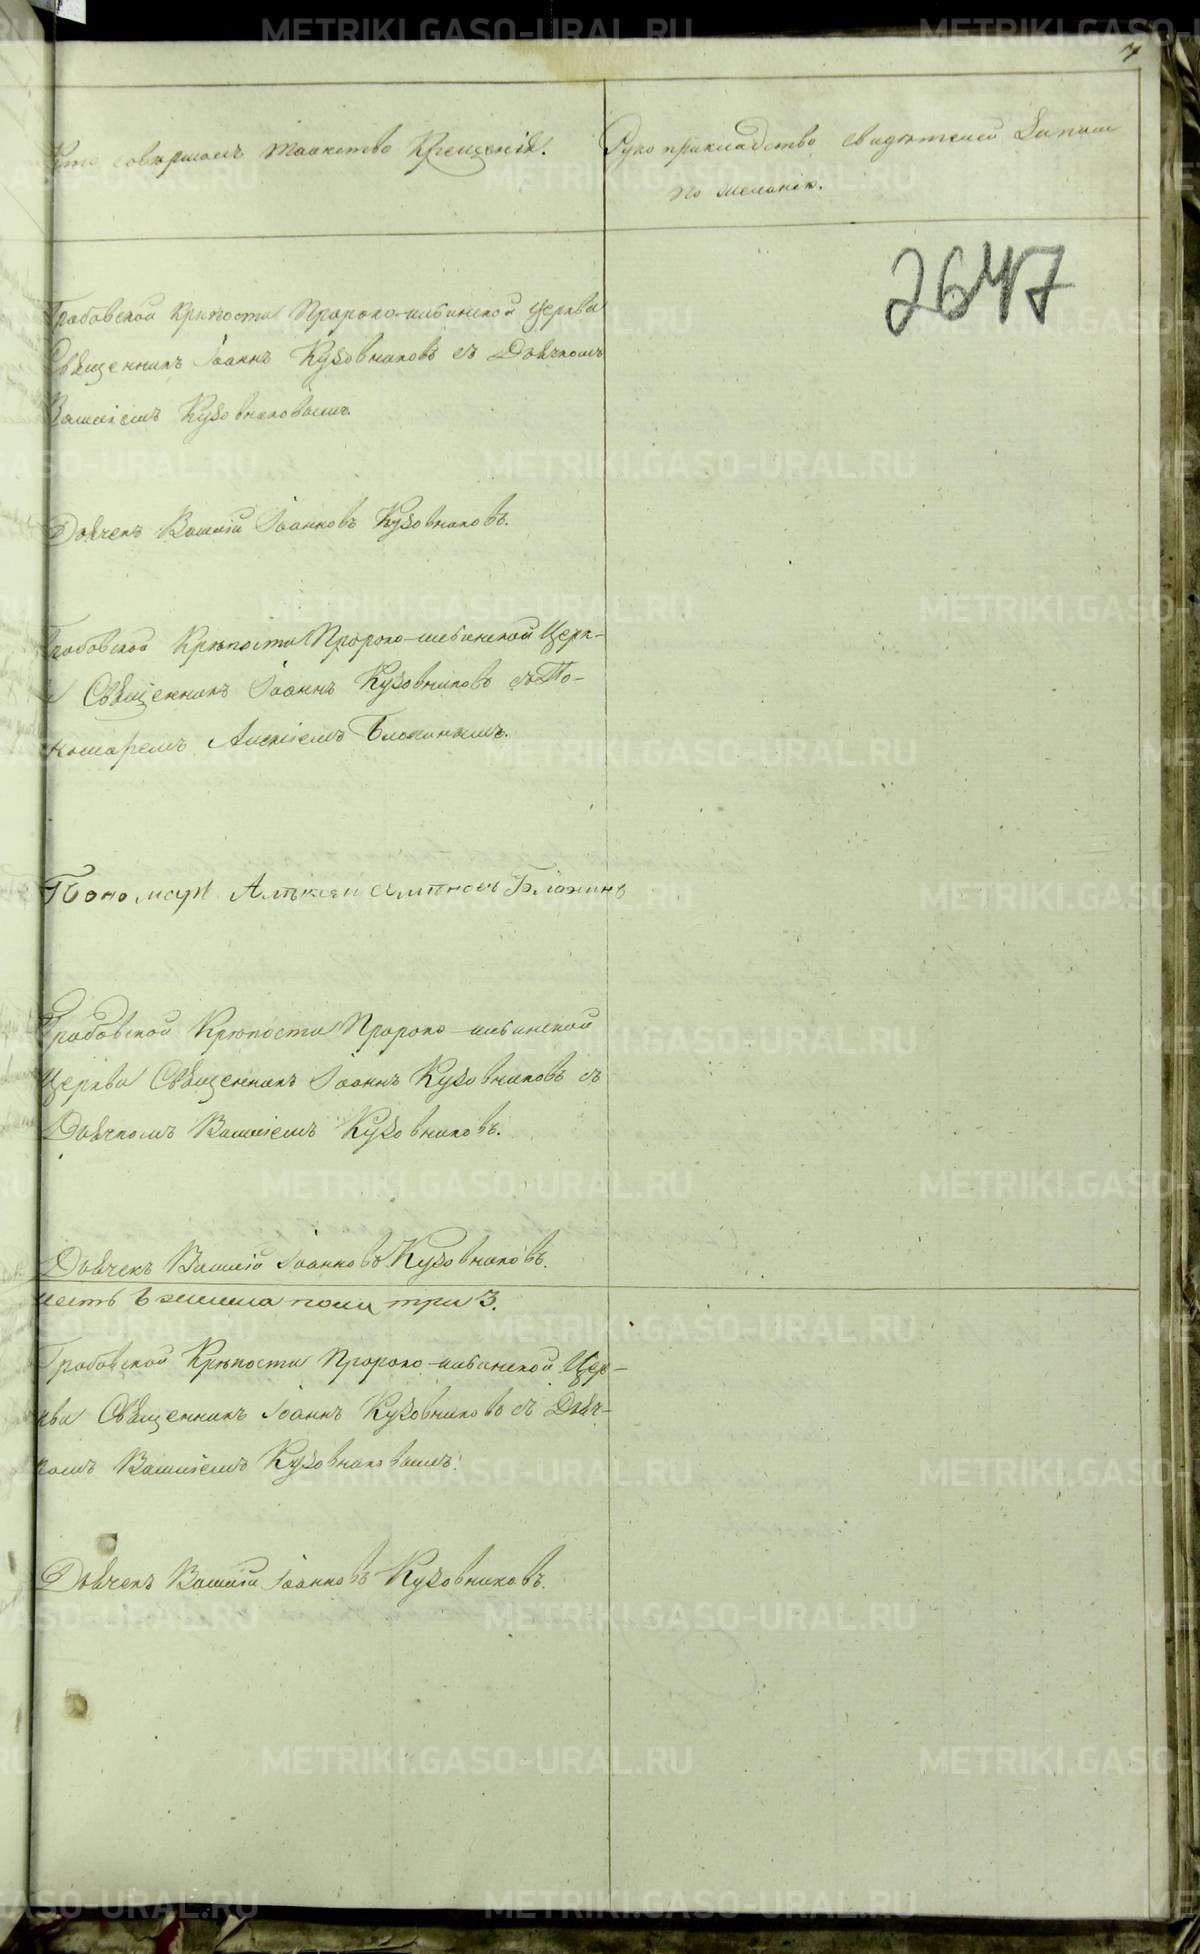 7
Кто совершалъ таинство Крещенія.
Рукоприкладство свидѣтелей записи
по желанію.
2647
Грабовской Крѣпости Пророко-ильинской церкви
Священникъ Іоаннъ Кузовниковъ съ Дьячкомъ
Василіемъ Кузовниковымъ.
Дьячекъ Василій Іоанновъ Кузовниковъ.
Грабовской Крѣпости Пророко-ильинской Церк-
и Священникъ Іоаннъ Кузовниковъ съ По-
номаремъ Алексіемъ Блажинымъ.
Пономарь Алѣксѣи Блажинъ
Грабовской Крѣпости Пророко-ильинской
Церкви Священникъ Іоаннъ Кузовниковъ съ
Дьячкомъ Василіемъ Кузовниковъ.
Дьячекъ Василій Іоанновъ Кузовниковъ.
три 3.
Грабовской Крѣпости Пророко-ильинской Цер-
кви Священникъ Іоаннъ Кузовниковъ съ Дьяч-
комъ Василіемъ Кузовниковымъ.
Дьячекъ Василій Іоанновъ Кузовниковъ.
METRIKI.GASO-URAL.RU